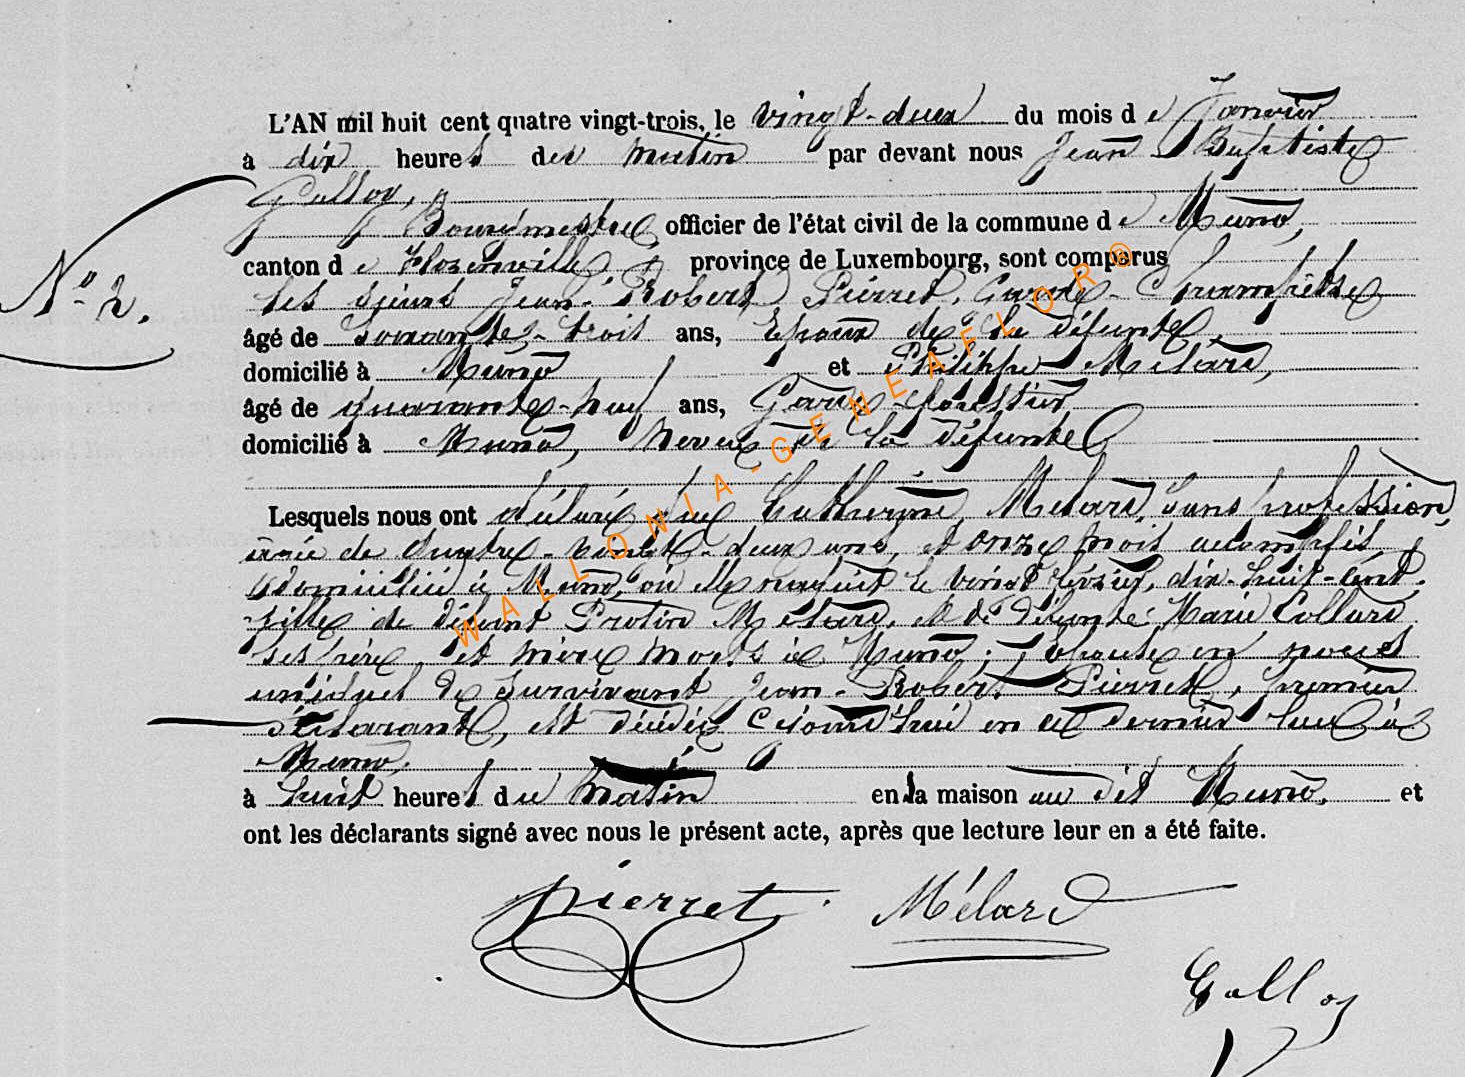 L'AN mil huit cent quatre vingt-trois, le vingt-deux du mois de Janvier
à dix heures du matin par devant nous Jean Baptiste
Galloy,
Bourgmestre officier de l'état civil de la commune de Muno,
canton de Florenville province de Luxembourg, sont comparus
les sieurs Jean-Robert Pierret, Garde-Champêtre
âgé de soixante-trois ans, Epoux de la défunte,
domicilié à Muno et Philippe Mélard,
N° 2.
âgé de quarante-neuf ans, Garde-forestier
domicilié à Muno, Neveu de la défunte
Lesquels nous ont déclaré que Catherine Mélard, sans profession,
âgée de quatre-vingt-deux ans, et onze mois accomplis,
domiciliée à Muno, où elle naquit le vingt février, dix-huit-cent.
fille de défunt Protin Mélard, et de défunte Marie Collard
ses père, et mère morts à Muno; Epouse en
de survivant Jean-Robert Pierret, premier
déclarant, est décédée cejourd'hui en ce dernier lieu à
Muno.
à huit heures du matin en la maison au dit Muno. et
ont les déclarants signé avec nous le présent acte, après que lecture leur en a été faite.
Pierret Mélard
Galloy
WALLONIA-GENEAFLOR®